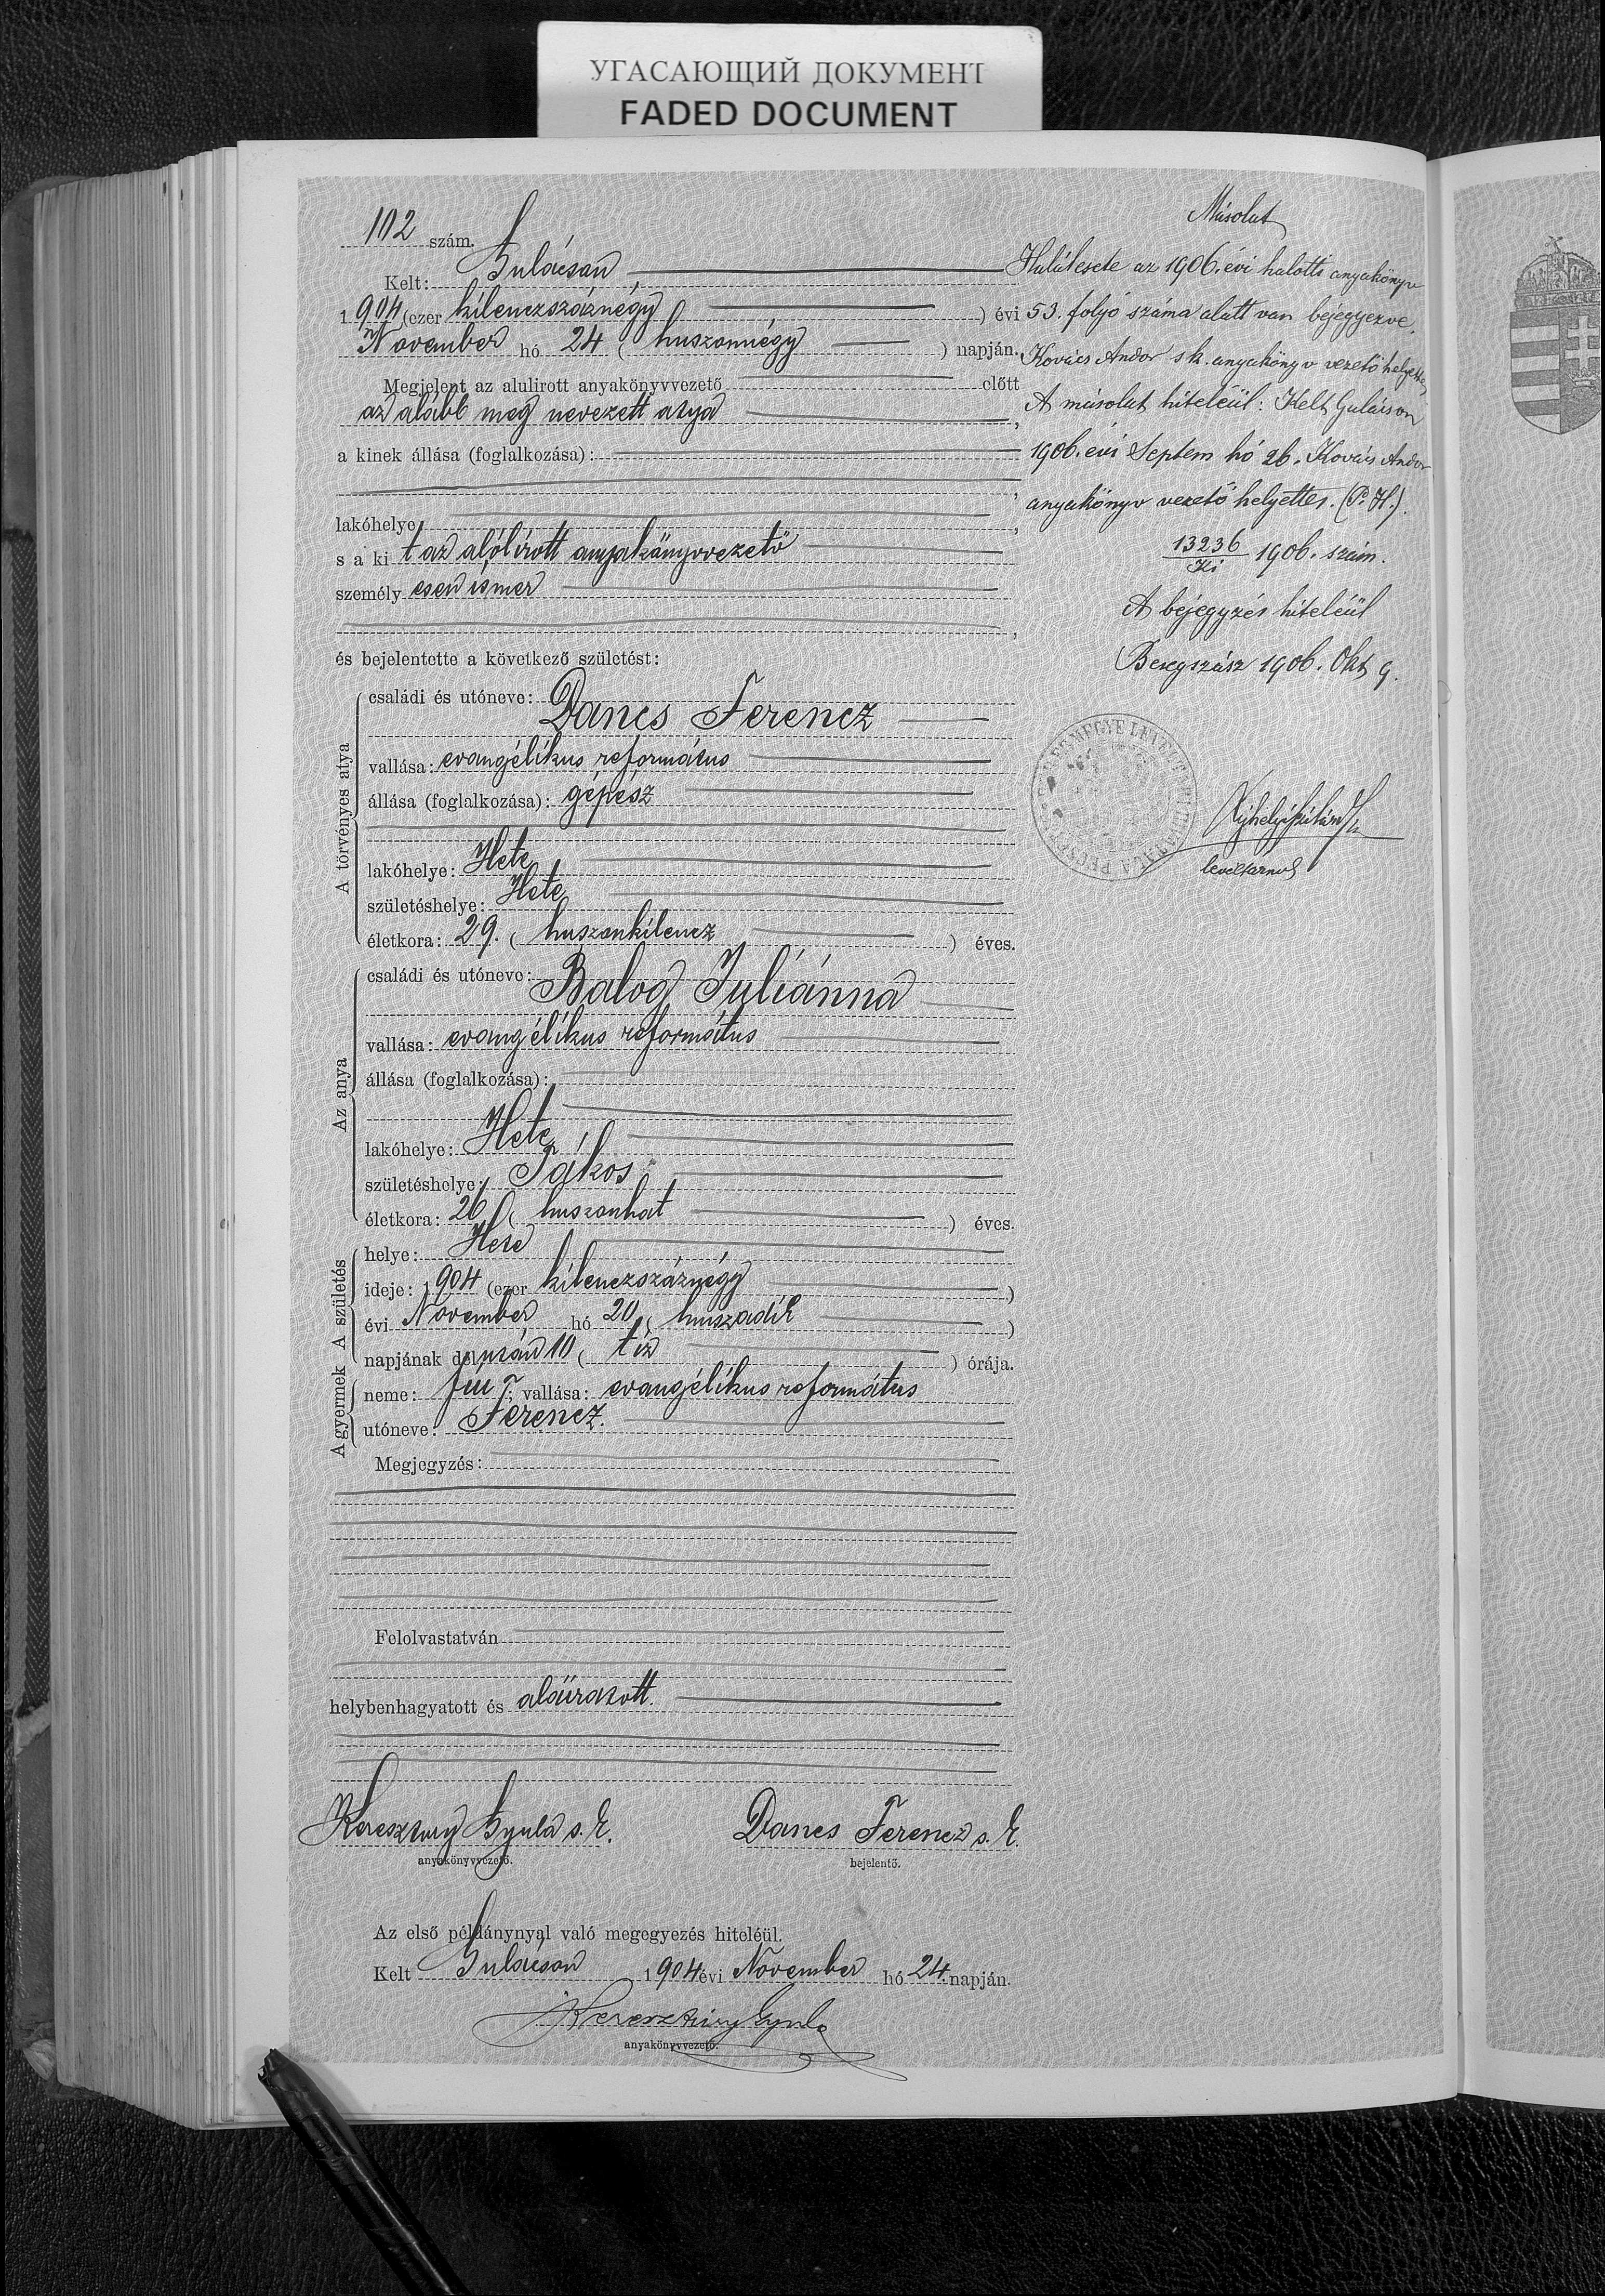 УГАСАЮЩИЙ ДОКУМЕНТ
FADED DOCUMENT
102 szám.
Kelt: Gulácson
1904 (ezer kilenczszáznégy ) évi
November hó 24 ( huszonnégy ) napján.
Megjelent az alulirott anyakönyvvezető előtt
az alább meg nevezett atya ,
a kinek állása (foglalkozása):
,
lakóhelye ,
s a ki t az alólírott anyakönyvvezető
személy esen ismer
,
és bejelentette a következő születést:
A törvényes atya
családi és utóneve: Dancs Ferencz
vallása: evangélikus református
állása (foglalkozása): gépész
lakóhelye: Hete
születéshelye: Hete
életkora: 29. ( huszonkilencz ) éves.
Az anya
családi és utóneve: Balog Juliánna
vallása: evangélikus református
állása (foglalkozása):
lakóhelye: Hete
születéshelye: Tákos
életkora: 26 ( huszonhat ) éves.
A születés
helye: Hete
ideje: 1904 (ezer kilenczszáznégy )
évi November hó 20 ( huszadik )
napjának délután 10 ( tíz ) órája.
A gyermek
neme: fiu vallása: evangélikus református
utóneve: Ferencz.
Megjegyzés:
Felolvastatván
helybenhagyatott és aláiratott.
Keresztury Gyula s. k. Dancs Ferencz s. k.
anyakönyvvezető. bejelentő.
Az első példánynyal való megegyezés hiteléül.
Kelt Gulácson 1904 évi November hó 24. napján.
Keresztury Gyula
anyakönyvvezető.
Másolat
Halálesete az 1906. évi halotti anyakönyv
53. folyó száma alatt van bejegyezve.
Kovács Andor s k. anyakönyv vezető helyettes,
A másolat hiteléül: Kelt Gulácson
1906. évi Septem hó 26. Kovács Andor
anyakönyv vezető helyettes. (P. H.).
13236
Ki 1906. szám.
A bejegyzés hiteléül
Beregszász 1906. Okt 9.
levéltárnok